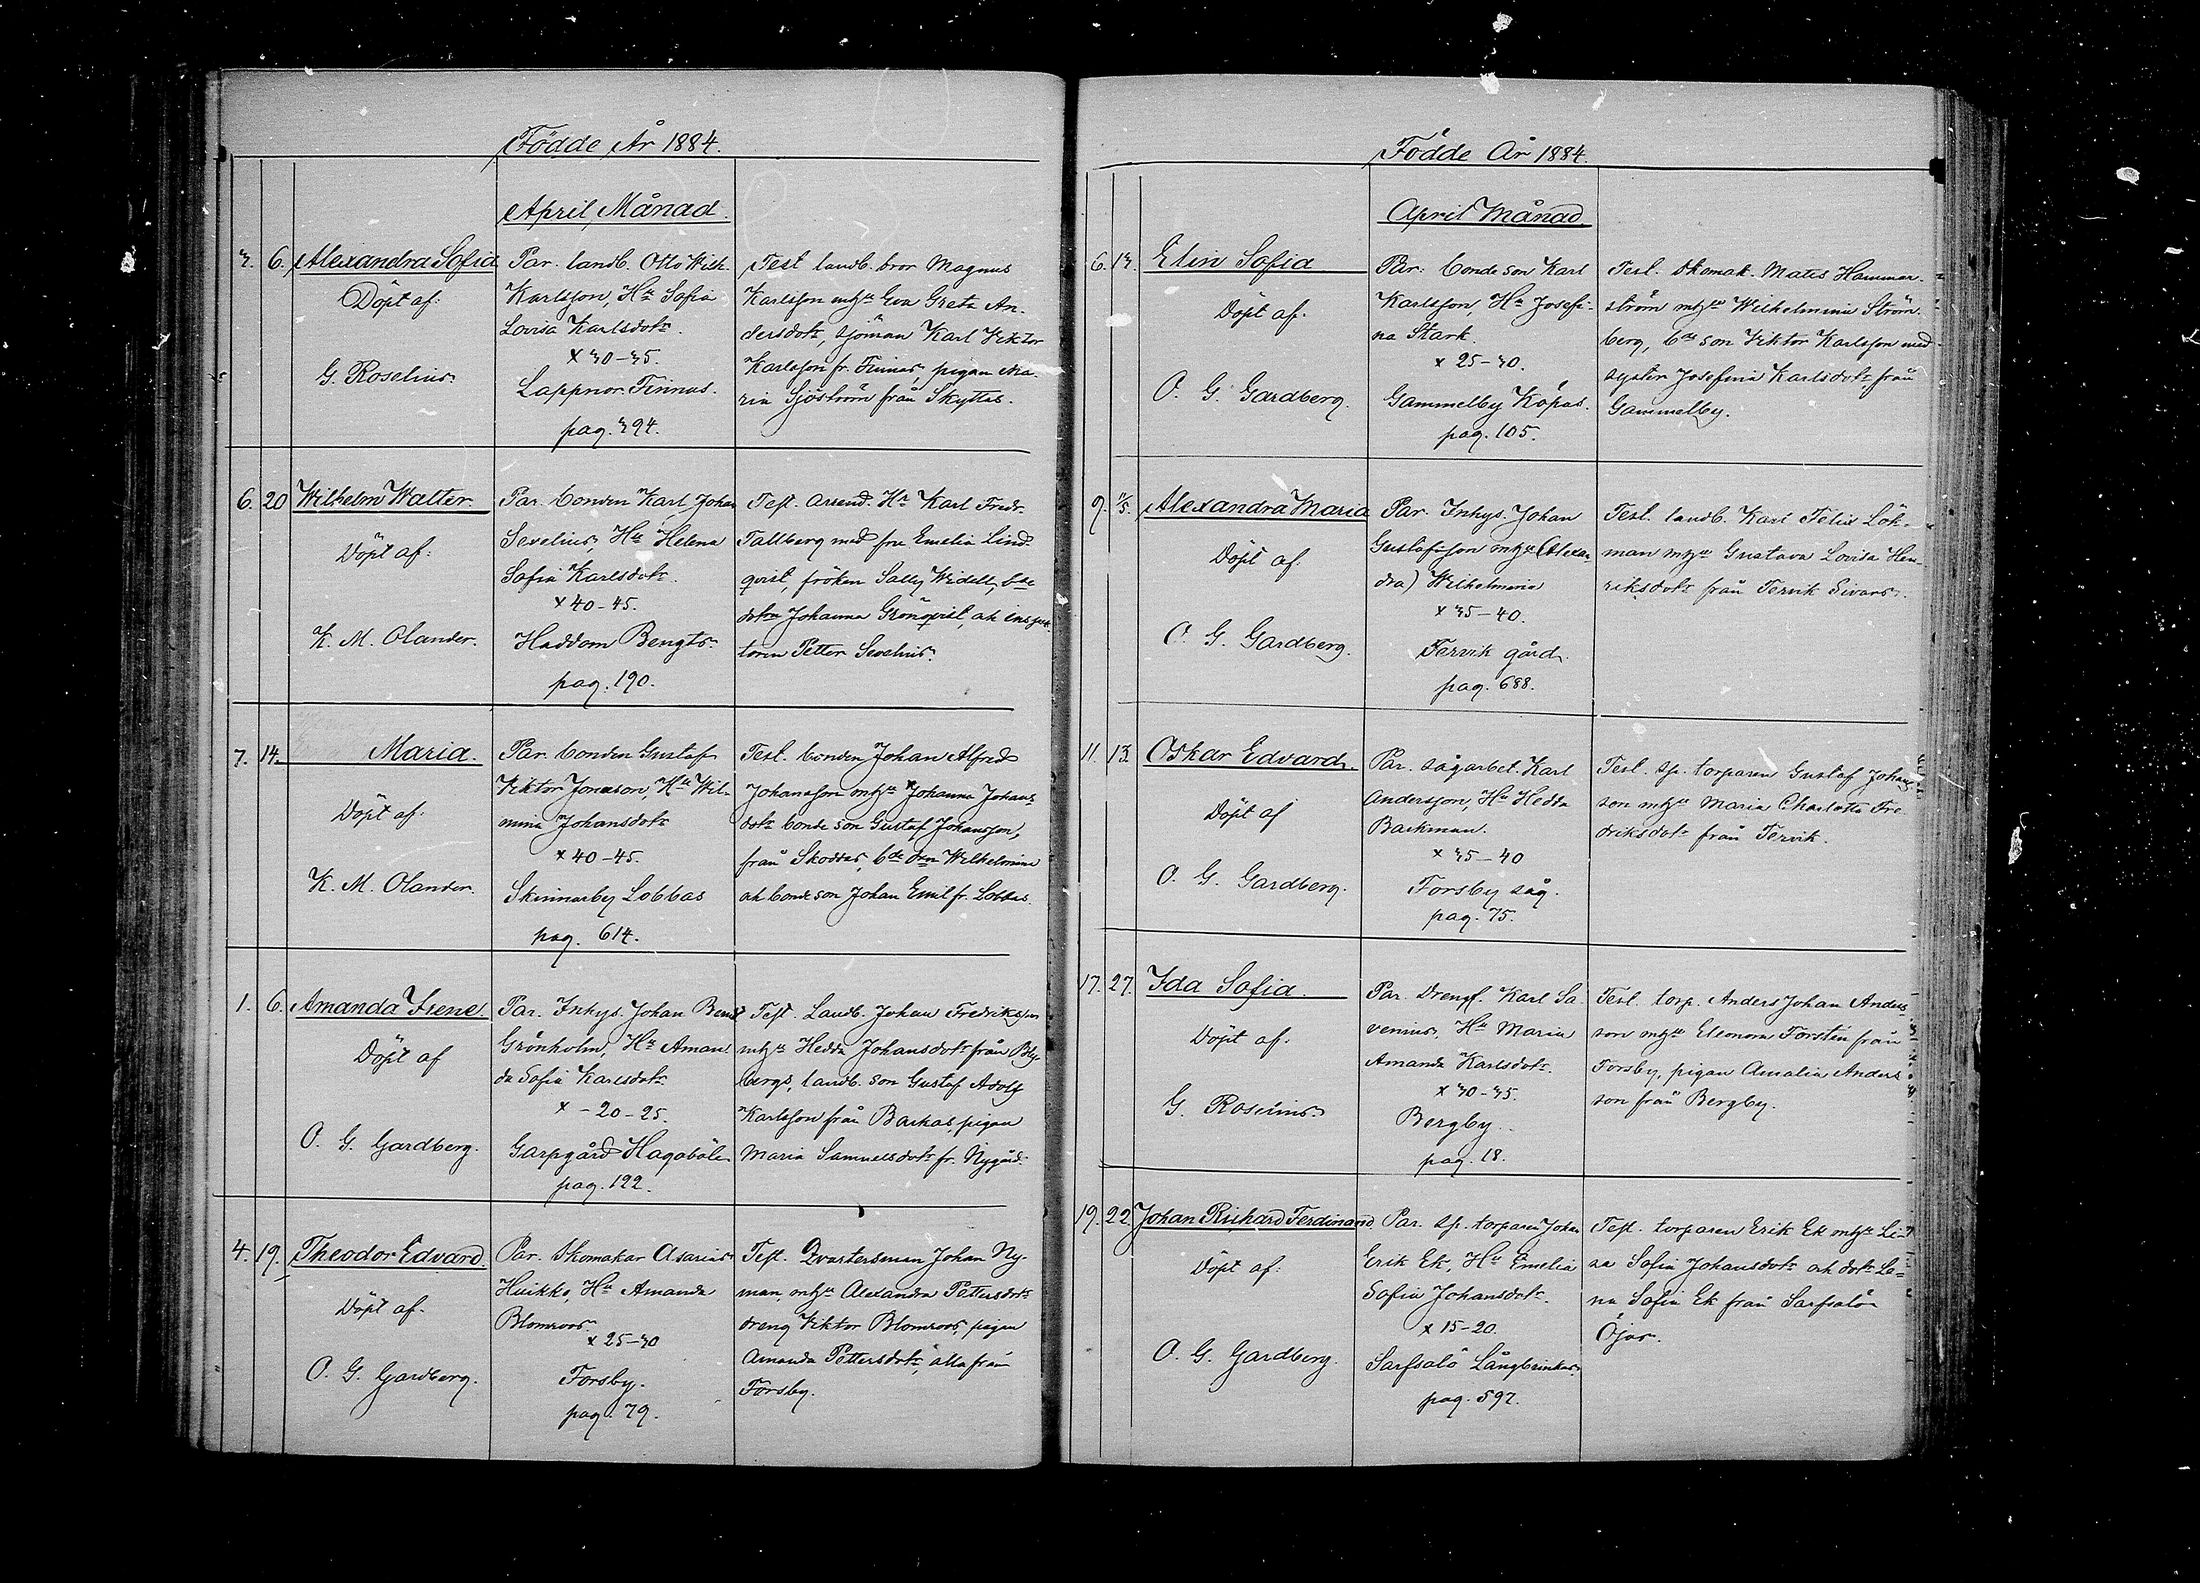 Födde År 1884.
April Månad
3. 6. Alexandra Sofia
Döpt af:
G. Roselius.
Par. landb. Otto Wilh.
Karlsson, Hu Sofia
Lovisa Karlsdotr.
x 30-35.
Lappnor Finnas.
pag. 394.
Test landb. bror Magnus
Karlsson mhu Eva Greta An-
dersdotr, sjöman Karl Viktor
Karlsson fr. Finnas, pigan Ma-
ria Sjöström från Skyttas.
6. 20 Wilhelm Walter.
Döpt af:
K. M. Olander.
Par. bonden Karl Johan
Sevelius, Hu Helena
Sofia Karlsdotr.
x 40-45.
Haddom Bengts
pag. 190.
Test. Arrend. Hr Karl Fredr.
Tallberg med fru Emelia Lind-
qvist, fröken Sally Widell, bde
dotr Johanna Grönqvist, och inspek-
toren Petter Sevelius.
7. 14. Maria.
Döpt af:
K. M. Olander.
Par. bonden Gustaf
Viktor Jonasson, Hu Wil-
mina Johansdotr
x 40-45.
Skinnarby Lobbas
pag. 614.
Test. bonden Johan Alfred
Johansson mhu Johanna Johans-
dotr bonde son Gustaf Johansson,
från Skottas, bde dtr Wilhelmina
och bonde son Johan Emil fr. Lobbas.
1. 6. Amanda Irene
Döpt af
O. G. Gardberg.
Par. Inhys. Johan Bernd
Grönholm, Hu Aman-
da Sofia Karlsdotr
x - 20-25.
Garpgård Hagaböle
pag. 122.
Test. Landb. Johan Fredriksson
mhu Hedda Johansdotr från Bly-
bergs, landb. son Gustaf Adolf
Karlsson från Backas, pigan
Maria Samuelsdotr fr. Nygård.
4. 19. Theodor Edvard.
Döpt af.
O. G. Gardberg.
Par. Skomakar Asarias
Huikko, Hu Amanda
Blomroos.
x 25-30
Forsby.
pag. 79.
Test. Qvartersman Johan Ny-
man, mhu Alexandra Pettersdotr
dreng Viktor Blomroos, pigan
Amanda Pettersdotr, alla från
Forsby.
Födde År 1884.
April Månad
6. 13. Elin Sofia
Döpt af.
O. G. Gardberg.
Par. bonde son Karl
Karlsson, Hu Josefi-
na Stark.
x 25-30.
Gammelby Köpas.
pag. 105.
Test. Skomak. Mats Hammar-
ström mhu Wilhelmina Ström-
berg, bde son Viktor Karlsson med
syster Josefina Karlsdotr, från
Gammelby.
9. 11/5. Alexandra Maria
Döpt af.
O. G. Gardberg.
Par. Inhys. Johan
Gustafsson mhu (Alexan-
dra) Wilhelmina
x 35-40.
Tervik gård.
pag. 688.
Test. landb. Karl Felix Lök-
man mhu Gustava Lovisa Hen-
riksdotr från Tervik Sivars.
11. 13. Oskar Edvard.
Döpt af
O. G. Gardberg.
Par. sågarbet. Karl
Andersson, Hu Hedda
Backman.
x 35-40
Forsby såg.
pag. 75.
Test. sp. torparen Gustaf Johans-
son mhu Maria Charlotta Fre-
driksdotr från Tervik.
17. 27. Ida Sofia.
Döpt af.
G. Roselius.
Par. Dreng. Karl Sa-
venius, Hu Maria
Amanda Karlsdotr.
x 30-35.
Bergby.
pag. 18.
Test. torp. Anders Johan Anders-
son mhu Eleonora Forstén från
Forsby, pigan Amalia Anders-
son från Bergby.
19. 22. Johan Richard Ferdinand
Döpt af.
O. G. Gardberg.
Par. sp. torparen Johan
Erik Ek, Hu Emelia
Sofia Johansdotr.
x 15-20.
Sarfsalö Långbrinkas.
pag. 597.
Test. torparen Erik Ek mhu Li-
sa Sofia Johansdotr och dotr Le-
na Sofia Ek från Sarfsalö
Öjas.